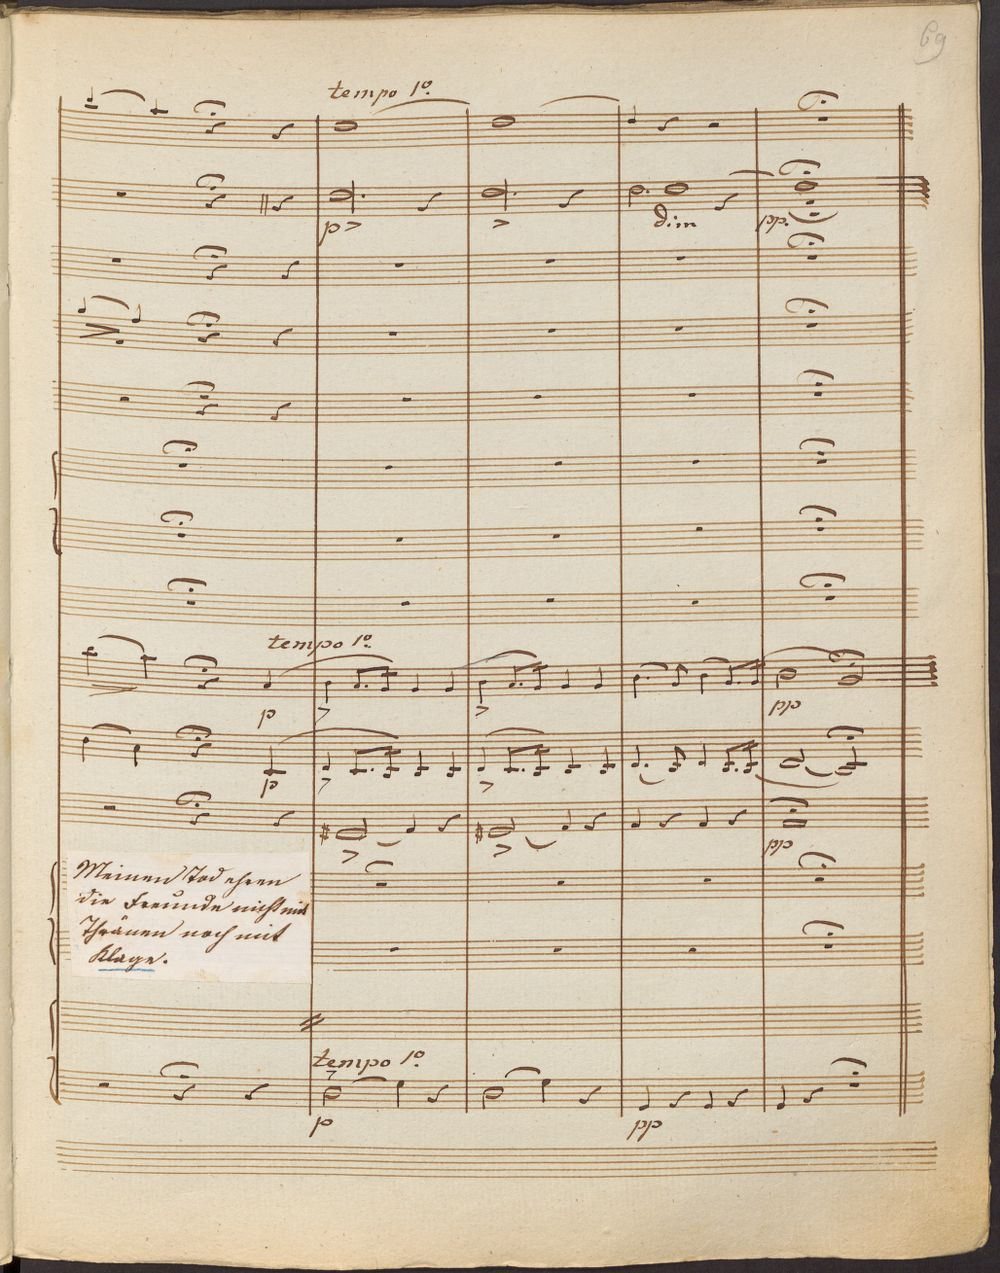 69
tempo 1º.
p
dim
pp.
tempo 1º.
p
pp
p
pp
Meinen Tod ehren
die Freunde nicht mit
Thränen noch mit
Klage.
tempo 1º.
p
pp